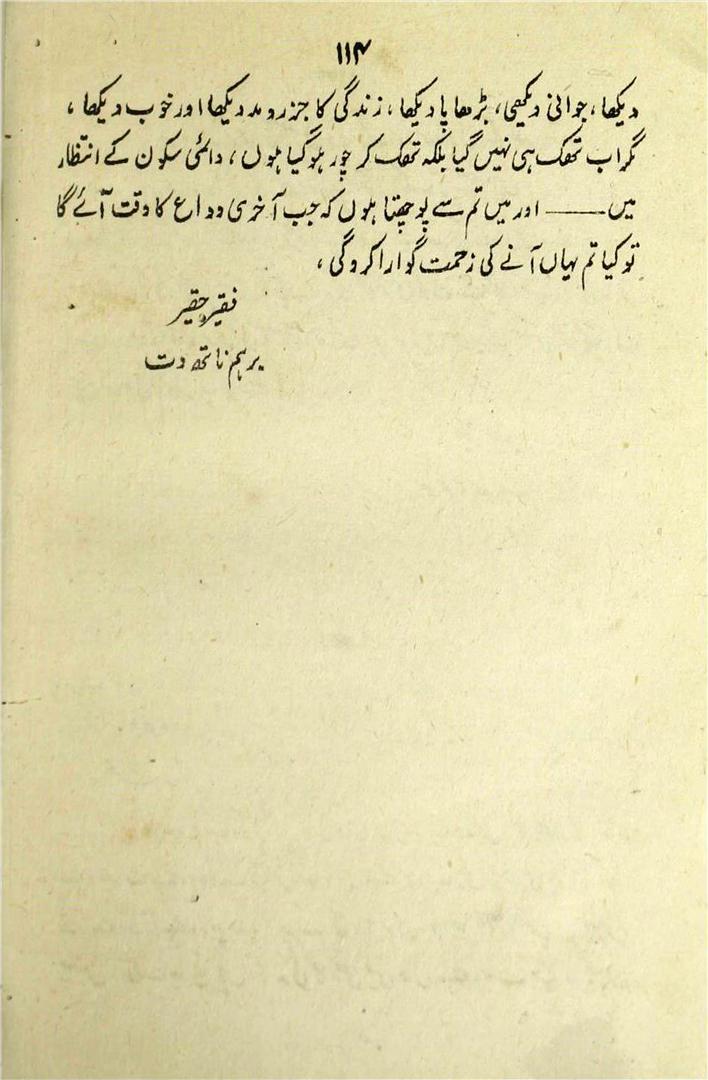 ۱۱۴
دیکھا، جوانی دیکھی، بڑھاپا دیکھا، زندگی کا جزر و مد دیکھا اور خوب دیکھا،
مگر اب تھک ہی نہیں گیا بلکہ تھک کر چور ہو گیا ہوں، دائمی سکون کے انتظار
میں ــــــ اور میں تم سے پوچھتا ہوں کہ جب آخری وداع کا وقت آئے گا
تو کیا تم یہاں آنے کی زحمت گوارا کرو گی،
فقیر حقیر
برہم ناتھ دت